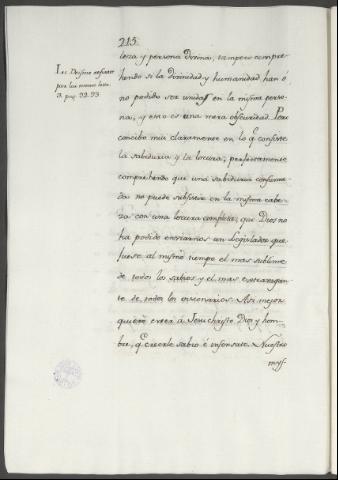 215.
Le Deisme refuté
par lui meme lettr.
3. pag. 92. 93.
leza y persona Divina; tampoco compre-
hendo si la divinidad y humanidad han ó
no podido ser unidas en la misma perso-
na, y esto es una mera obscuridad. Pero
concibo mui claramente en lo q.e consiste
la sabiduria y la locura; perfectamente
comprehendo que una sabiduria consuma-
da no puede subsistir en la misma cabe-
za con una locura completa; que Dios no
ha podido enviarnos un Legislador que
fuese al mismo tiempo el mas sublime
de todos los sabios y el mas extravagan-
te de todos los visionarios. Asi mejor
quiero creer á Jesu christo Dios y hom-
bre, q.e creerle sabio é insensato. Nuestro
mys-